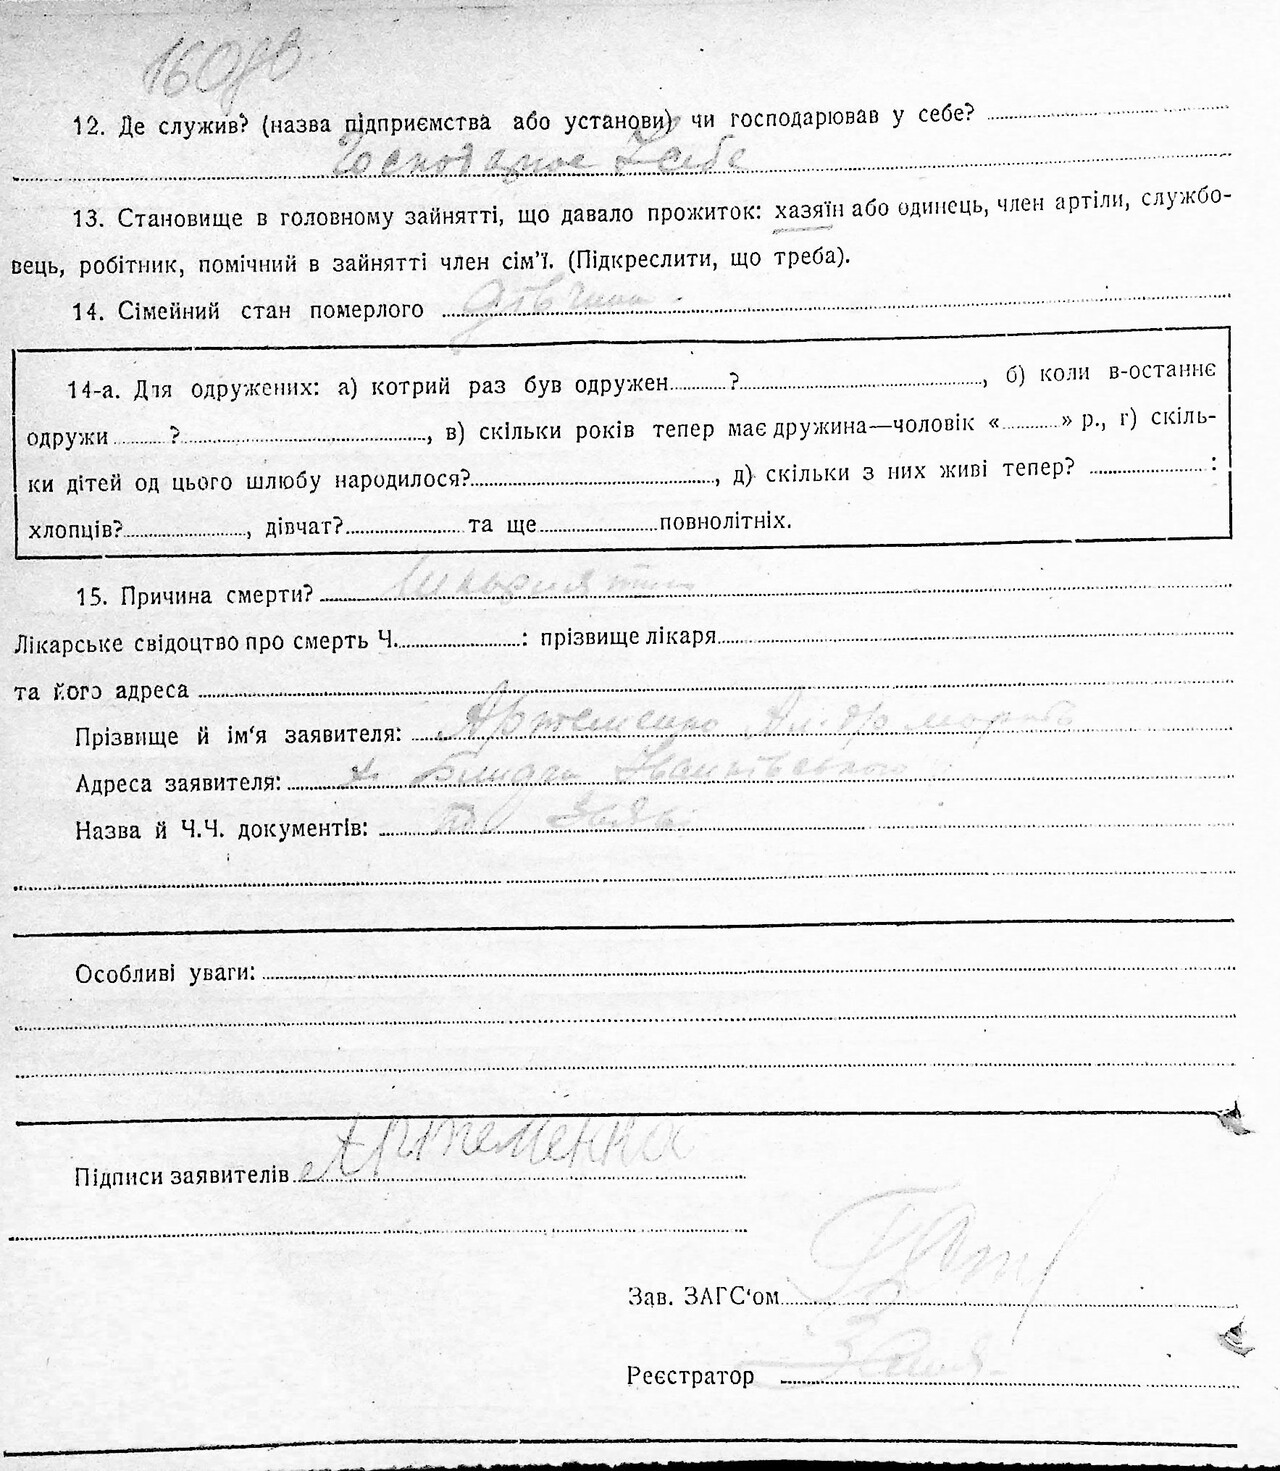 12. Де служив? (назва підприємства або установи) чи господарював у себе?
Господарює У себе
13. Становище в головному зайнятті, що давало прожиток: хазяїн або одинець, член артіли, службо-
вець, робітник, помічний в зайнятті член сім'ї. (Підкреслити, що треба).
14. Сімейний стан померлого дівчина
14-а. Для одружених: а) котрий раз був одружен ?, б) коли в-останнє
одружи ?, в) скільки років тепер має дружина—чоловік « » р., г) скіль-
ки дітей од цього шлюбу народилося?, д) скільки з них живі тепер? :
хлопців?, дівчат? та ще повнолітніх.
15. Причина смерти?
Лікарське свідоцтво про смерть Ч. : прізвище лікаря
та його адреса
Прізвище й ім'я заявителя: Артеменко
Адреса заявителя:
Назва й Ч.Ч. документів:
Особливі уваги:
Підписи заявителів Артеменко
Зав. ЗАГС'ом
Реєстратор